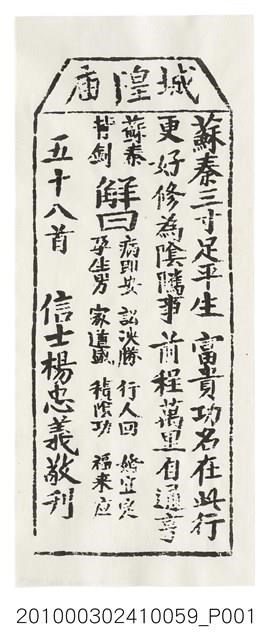 城隍庙
蘇秦三寸足平生 富貴功名在此行
更好修為陰隲事 前程萬里自通亨
蘇秦
背劍
解曰
病即安 訟決勝 行人回 婚宜定
孕生男 家道盛 積陰功 福來應
五十八首 信士楊忠義敬刊
201000302410059_P001